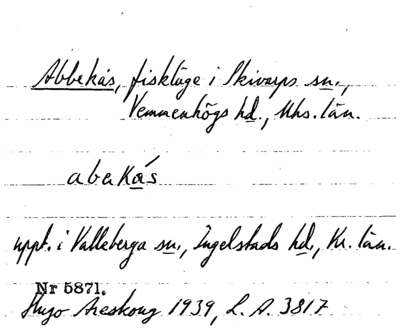 Abbekås, fiskläge i Skivarps sn.,
Vemmenhögs hd., Mhs. län.
abekás
uppt. i Valleberga sn., Ingelstads hd., Kr. län.
Nr 5871.
Hugo Areskoug 1939, L. A. 3817